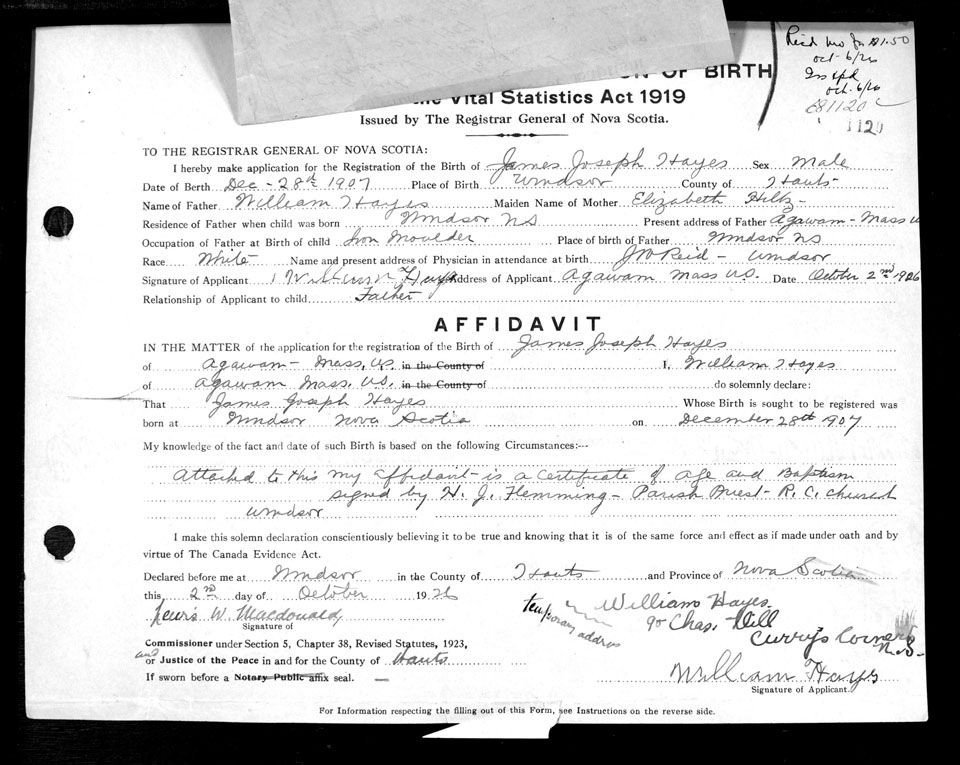 Rec'd mo for $1.50
Oct 6/26
Ins ppd
Oct. 6/26
681120
1120
OF BIRTH
the Vital Statistics Act 1919
Issued by The Registrar General of Nova Scotia.
TO THE REGISTRAR GENERAL OF NOVA SCOTIA:
I hereby make application for the Registration of the Birth of James Joseph Hayes Sex Male
Date of Berth Dec - 28th 1907 Place of Birth Windsor County of Hants
Name of Father William Hayes Maiden Name of Mother Elizabeth Hiltz -
Residence of Father when child was born Windsor NS Present address of Father Agawam - Mass U
Occupation of Father at Birth of child Iron Moulder Place of birth of Father Windsor NS
Race White Name and present address of Physician in attendance at birth JW Reid - Windsor
Signature of Applicant William Hays Address of Applicant Agawam Mass US. Date October 2nd 1926
Relationship of Applicant to child Father
AFFIDAVIT
IN THE MATTER of the application for the registration of the Birth of James Joseph Hayes
of Agawam - Mass, US. in the County of I, William Hayes
of Agawam Mass. US. in the County of do solemnly declare:
That James Joseph Hayes Whose Birth is sought to be registered was
born at Windsor Nova Scotia on December 28th 1907
My knowledge of the fact and date of such Birth is based on the following Circumstances:—
Attached to this my affidavit - is a Certificate of age and Baptism
signed by H. J. Flemming - Parish Priest - R. C. church
Windsor
I make this solemn declaration conscientiously believing it to be true and knowing that it is of the same force and effect as if made under oath and by
virtue of The Canada Evidence Act.
Declared before me at Windsor in the County of Hants and Province of Nova Scotia
this 2nd day of October 1926
Lewis W. Macdonald,
Signature of
temporary address
William Hayes.
c/o Chas. Dill
Curry's Corner
N.S-
Commissioner under Section 5, Chapter 38, Revised Statutes, 1923,
and
or Justice of the Peace in and for the County of Hants
If sworn before a Notary Public affix seal. —
William Hays
Signature of Applicant.
For Information respecting the filling out of this Form, see Instructions on the reverse side.